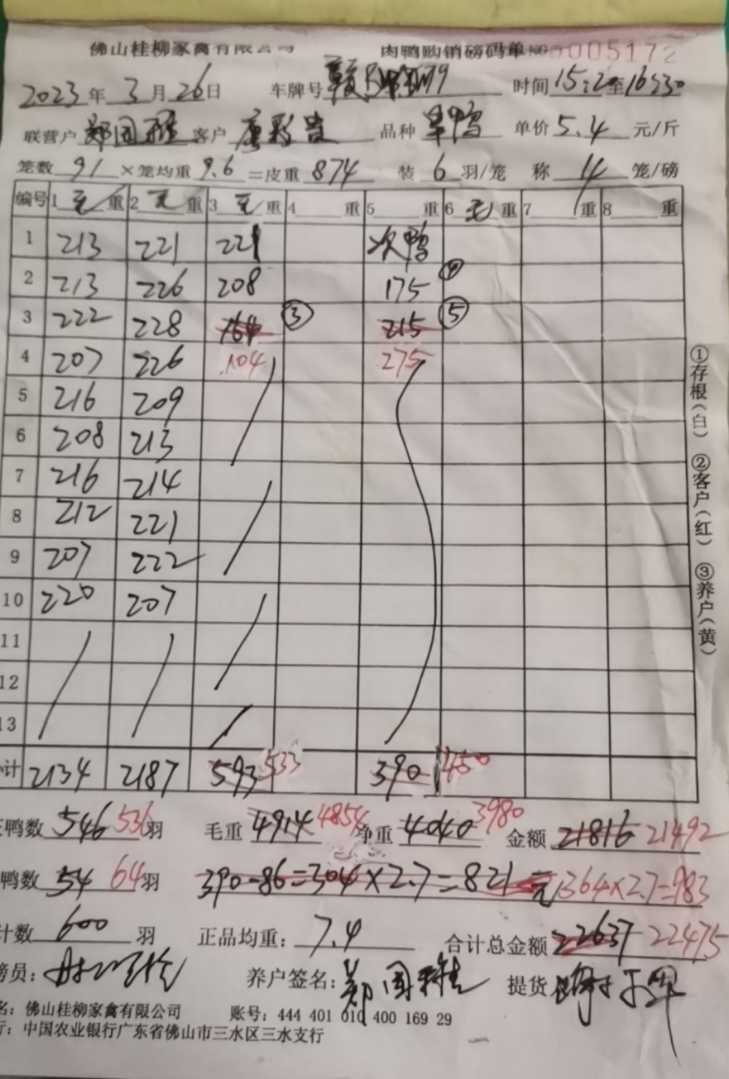 佛山桂柳家禽有限公司 肉鸭购销磅码单 NO 0005172
2023年3月26日 车牌号 时间15:20至16:30
联营户 郑国 客户 品种 鸭 单价5.4元/斤
笼数91×笼均重9.6=皮重874 装6羽/笼 称4笼/磅
编号 1毛重 2毛重 3毛重 4重 5重 6毛重 7重 8重
1 213 221 221 次鸭
2 213 226 208 175 ④
3 222 228 164 ③ 215 ⑤
4 207 226 104 275
5 216 209
6 208 213
7 216 214
8 212 221
9 207 222
10 220 207
11
12
13
计 2134 2187 593 533 390 450
鸭数546 536羽 毛重4914 4854 净重4040 3980 金额21816 21492
鸭数54 64羽 390-86=304×2.7=821元 364×2.7=983
计数600羽 正品均重:7.4 合计总金额22637 22475
磅员: 养户签名:郑国 提货
名:佛山桂柳家禽有限公司 账号:444 401 010 400 169 29
行:中国农业银行广东省佛山市三水区三水支行
①存根(白) ②客户(红) ③养户(黄)